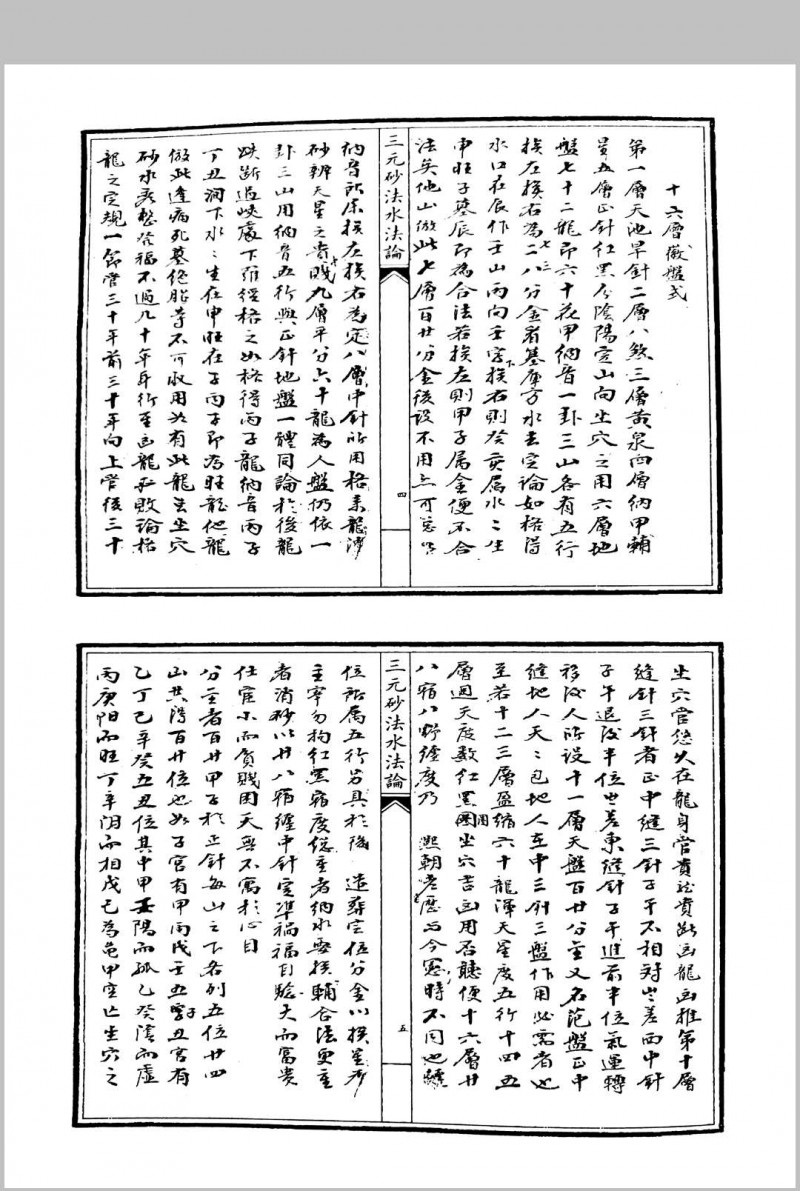 十六層嶶盤式
第一層天池旱針二層八煞三層黃泉四層納甲輔
星五層正針紅黑分陰陽定山向坐穴之用六層地
盤七十二龍即六十花甲納音一卦三山各有五行
挨左挨右為二八七三分金看墓庫方水去定論如格得
水口在辰作壬山丙向壬字下挨右則癸亥属水水生
申旺子墓辰即為合法若挨左則甲子属金便不合
法矣他山倣此七層百廿分金後設不用亦可
三元砂法水法論
四
納音所屬挨左挨右為定八層中針所用格來龍消
砂辨天星之貴賤九層平分六十龍為人盤仍依一
卦三山用納音五行與正針地盤一體同論於後龍
跌斷過峽處下羅經格之如格得丙子龍納音丙子
丁丑澗下水水生在申旺在子丙子即為旺龍他龍
倣此逢病死墓絕胎等不可收用如有此龍去坐穴
砂水秀整發福不過几十年年行至凶龍必敗論格
龍之定規一節管三十年前三十年向上管後三十
坐穴管悠久在龍身管貴龍貴此凶龍凶推第十層
縫針三針者正中縫三針子午不相對也差西中針
子午退後半位也差東縫針子午進前半位氣運轉
移後人所設十一層天盤百廿分金又名范盤正中
縫地人天天包地人在中三針三盤作用必需者也
至若十二三層盈縮六十龍渾天星度五行十四五
層週天度數紅黑圈圈坐穴吉凶用否聽便十六層廿
八宿八野纏度乃 熙朝考歷与今憲時不同也
三元砂法水法論
五
位所属五行另具於後 造葬定位分金以挨星為
主宰勿拘紅黑宿度縫重者納水要挨輔合法更重
者消砂以廿八宿纏中針定準禍福自驗大而富貴
仕宦小而貧賤困夭無不寓於心目
分金者百廿甲子於正針每山之下各列五位廿四
山共得百廿位也如子宮有甲丙戊壬五子丑宮有
乙丁己辛癸五丑位其中甲壬陽而孤乙癸陰而虛
丙庚陽而旺丁辛陰而相戊己為龜甲空亡坐穴之